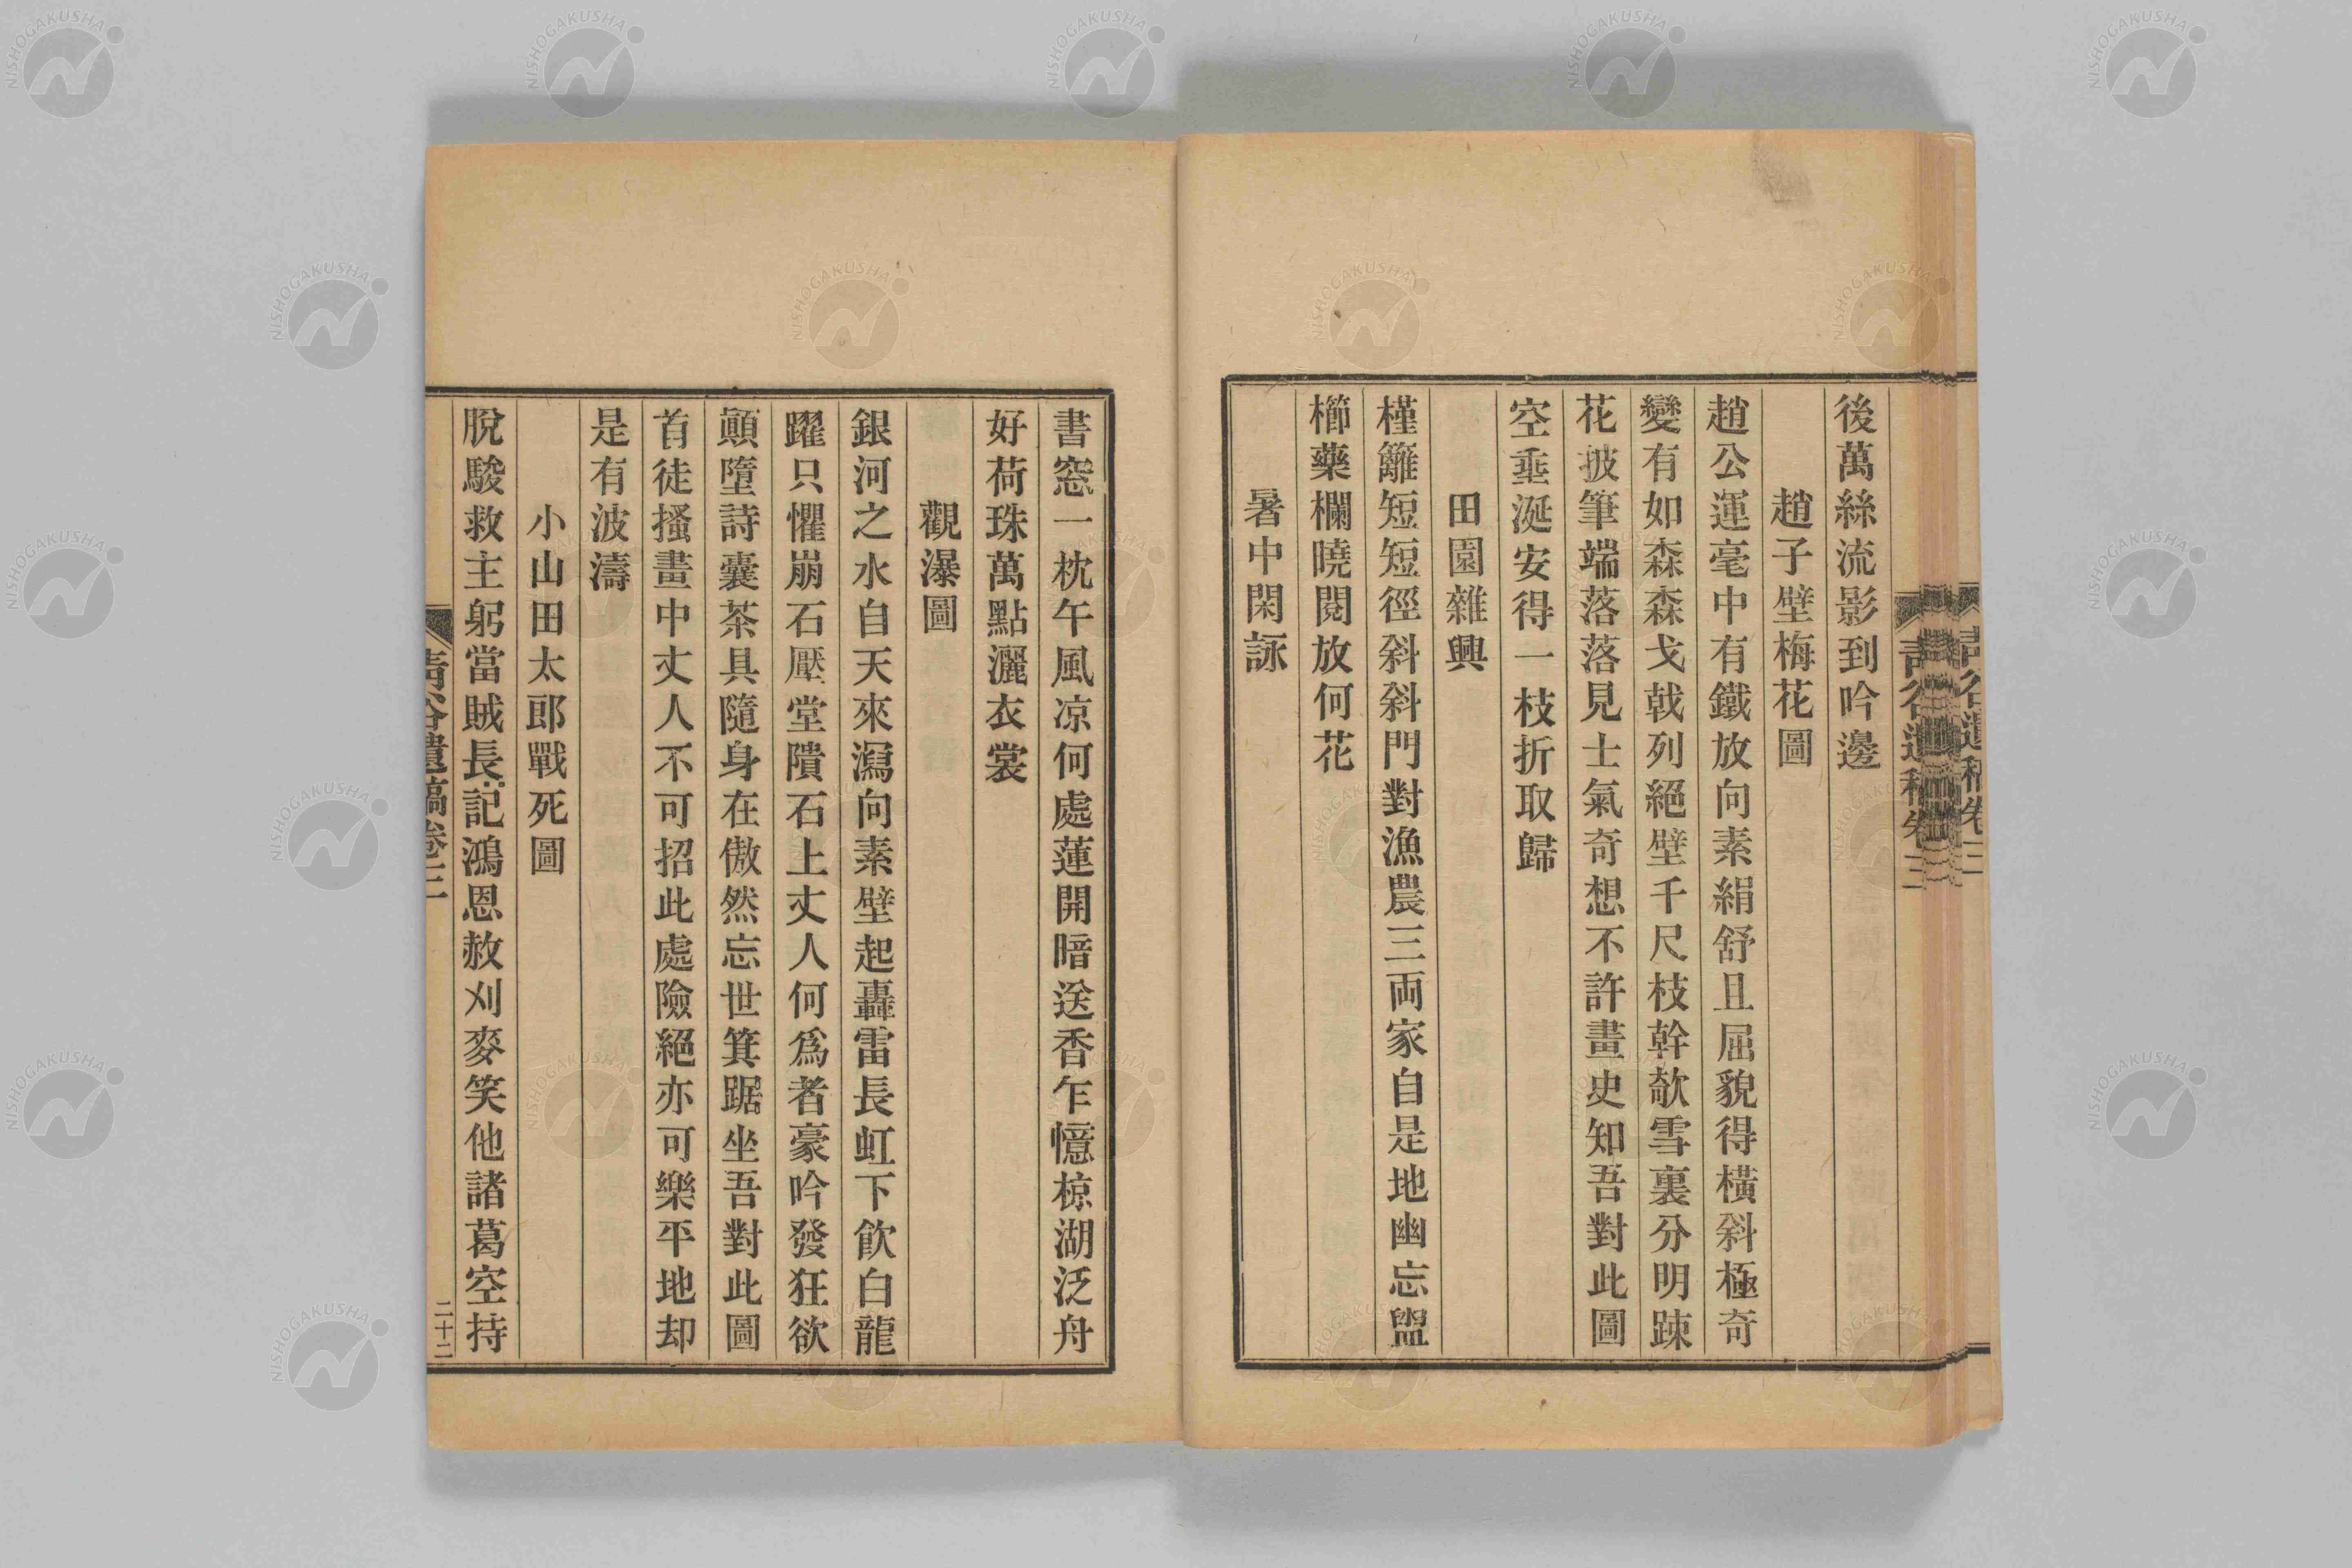 後萬絲流影到吟邊
趙子壁梅花圖
趙公運毫中有鐵放向素絹舒且屈貌得橫斜極奇
變有如森森戈戟列絕壁千尺枝幹欹雪裏分明踈
花披筆端落落見士氣奇想不許畫史知吾對此圖
空垂涎安得一枝折取歸
田園雜興
槿籬短短徑斜斜門對漁農三両家自是地幽忘盥
櫛藥欄曉閱放何花
暑中閑詠
書窓一枕午風凉何處蓮開暗送香乍憶椋湖泛舟
好荷珠萬點灑衣裳
觀瀑圖
銀河之水自天來瀉向素壁起轟雷長虹下飮白龍
躍只懼崩石壓堂隤石上丈人何爲者豪吟發狂欲
顚墮詩囊茶具隨身在傲然忘世箕踞坐吾對此圖
首徒搔畫中丈人不可招此處險絕亦可樂平地却
是有波濤
小山田太郎戰死圖
脫駿救主躬當賊長記鴻恩赦刈麥笑他諸葛空持
靑谷遺稿卷三
二十二
NISHOGAKUSHA